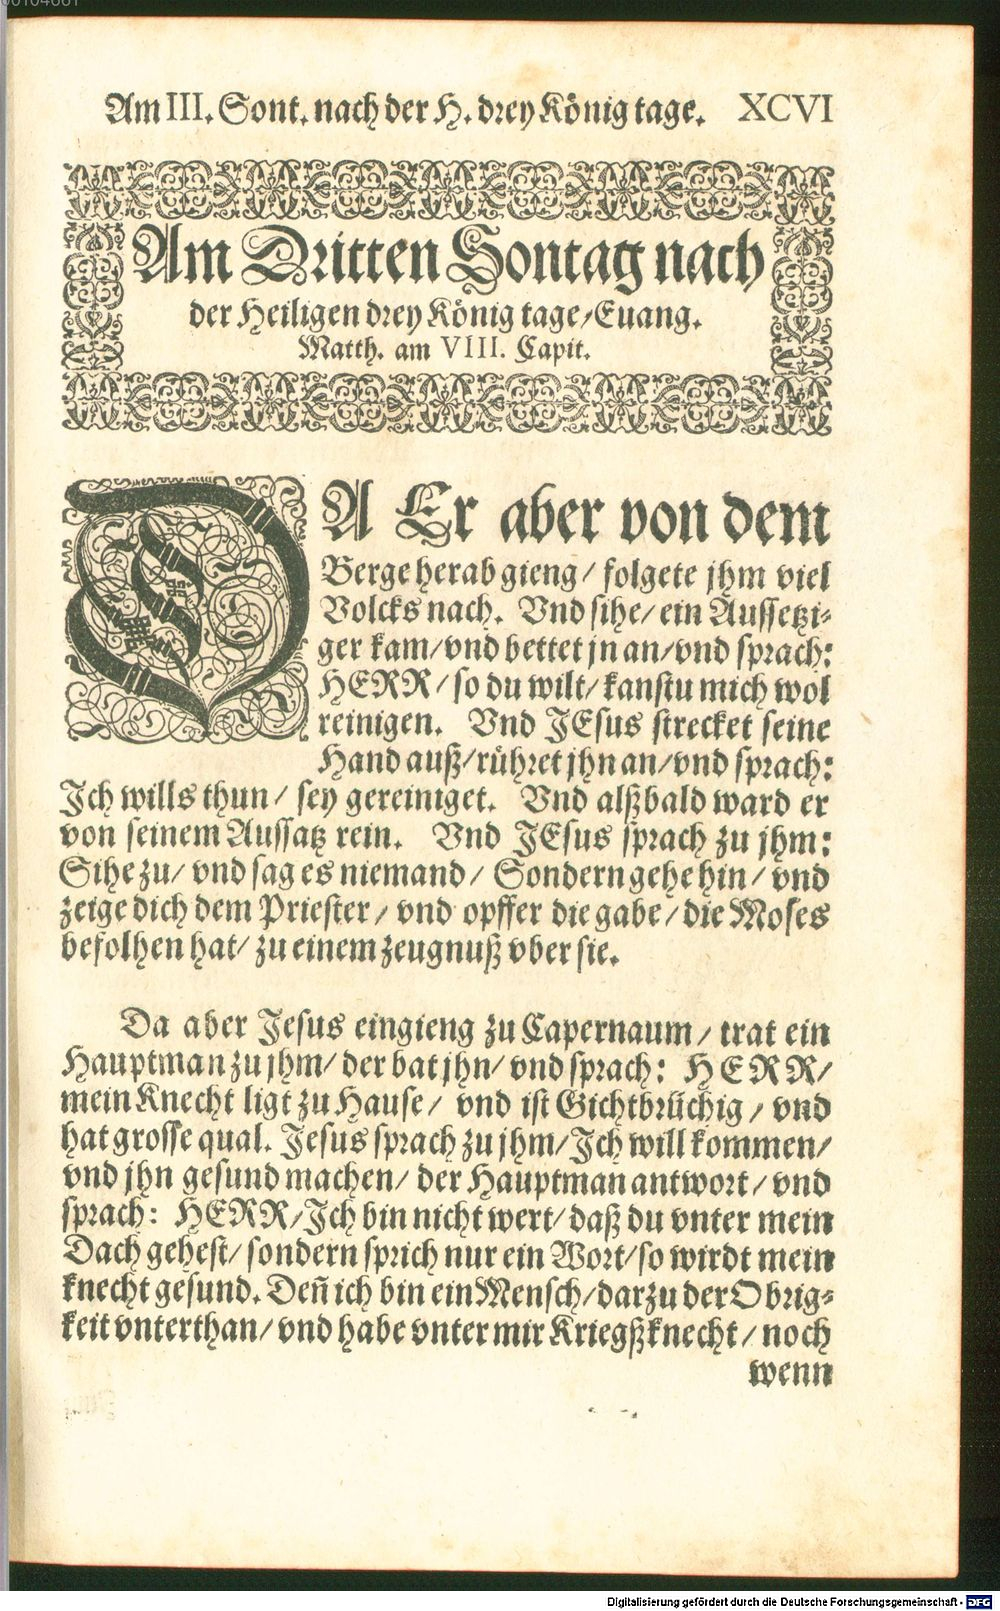 00104081
Am III. Sont. nach der H. drey König tage. XCVI
Am Dritten Sontag nach
der Heiligen drey König tage/Euang.
Matth. am VIII. Capit.
DA Er aber von dem
Berge herab gieng/ folgete jhm viel
Volcks nach. Vnd sihe/ ein Aussetzi-
ger kam/vnd bettet jn an/vnd sprach:
HERR/ so du wilt/ kanstu mich wol
reinigen. Vnd JEsus strecket seine
Hand auß/rühret jhn an/vnd sprach:
Ich wills thun/ sey gereiniget. Vnd alßbald ward er
von seinem Aussatz rein. Vnd JEsus sprach zu jhm:
Sihe zu/ vnd sag es niemand/ Sondern gehe hin/ vnd
zeige dich dem Priester/ vnd opffer die gabe/ die Moses
befolhen hat/ zu einem zeugnuß vber sie.
Da aber Jesus eingieng zu Capernaum/ trat ein
Hauptman zu jhm/ der bat jhn/ vnd sprach: HERR/
mein Knecht ligt zu Hause/ vnd ist Gichtbrüchig/ vnd
hat grosse qual. Jesus sprach zu jhm/Ich will kommen/
vnd jhn gesund machen/ der Hauptman antwort/ vnd
sprach: HERR/Ich bin nicht wert/ daß du vnter mein
Dach gehest/ sondern sprich nur ein Wort/so wirdt mein
knecht gesund. Deñ ich bin ein Mensch/darzu der Obrig-
keit vnterthan/ vnd habe vnter mir Kriegßknecht/ noch
wenn
Digitalisierung gefördert durch die Deutsche Forschungsgemeinschaft - DFG